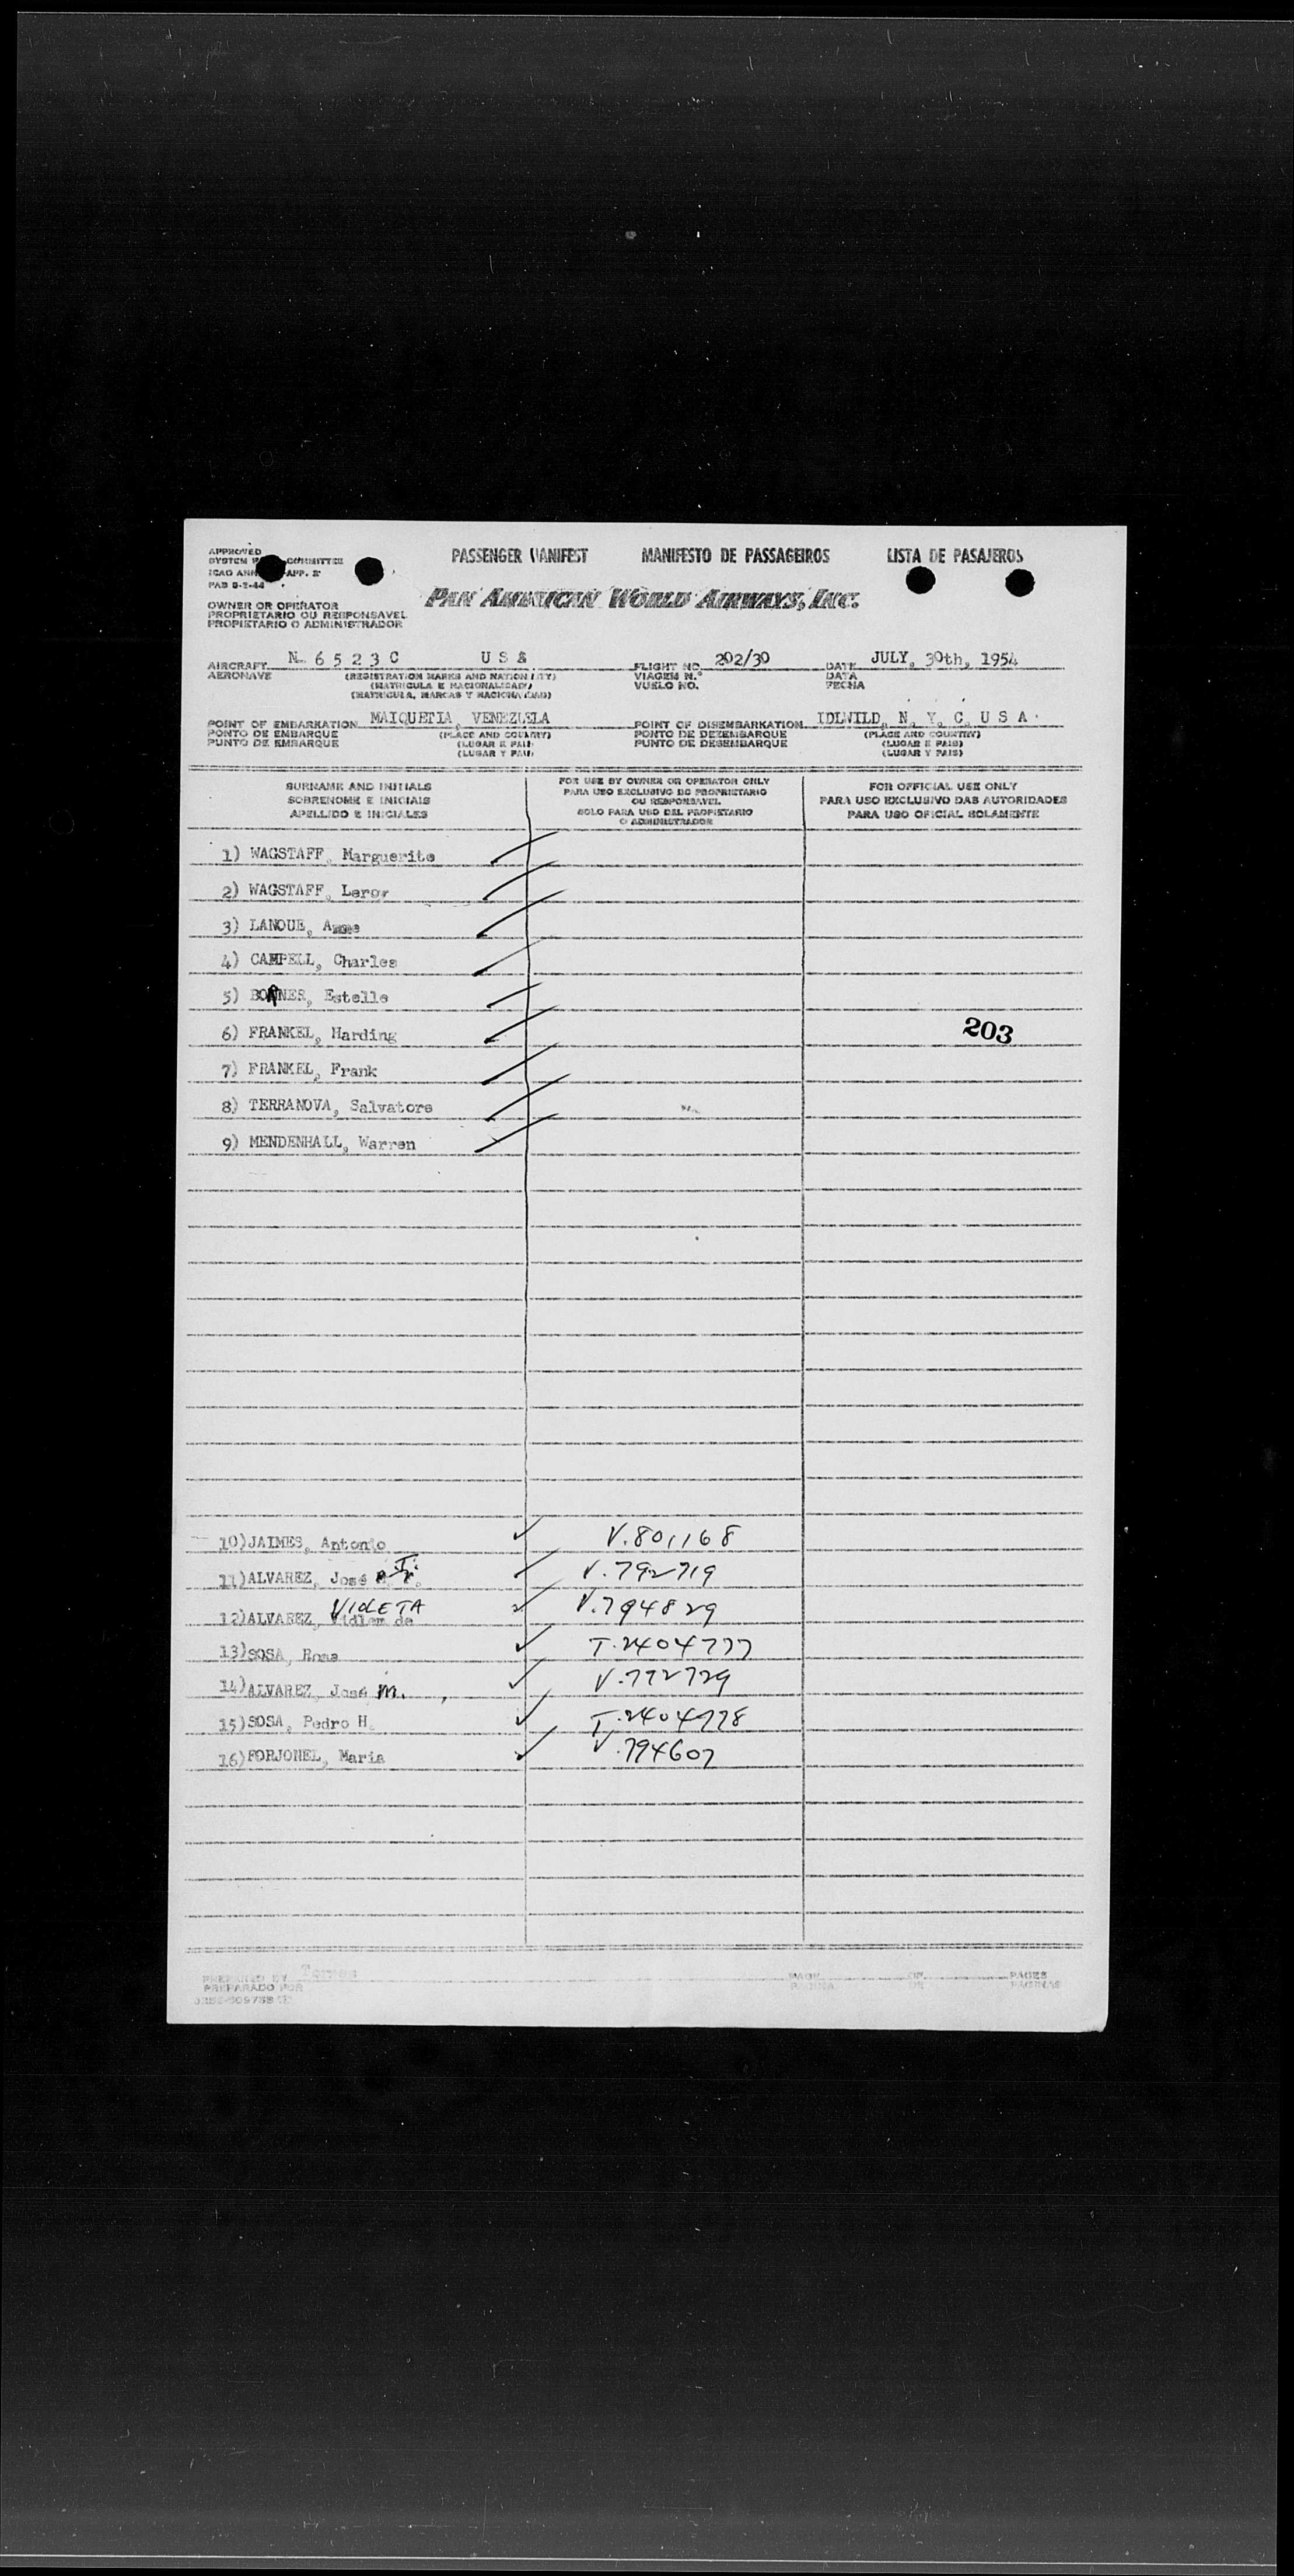 APPROVED
SYSTEM COMMITTEE
ICAO ANN APP. 2
PAB 5-1-44
PASSENGER MANIFEST MANIFESTO DE PASSAGEIROS LISTA DE PASAJEROS
PAN AMERICAN WORLD AIRWAYS, INC.
OWNER OR OPERATOR
PROPRIETARIO OU RESPONSAVEL
PROPIETARIO O ADMINISTRADOR
AIRCRAFT N 6 5 2 3 C U S A FLIGHT NO. 202/30 DATE JULY, 30th, 1954
AERONAVE (REGISTRATION MARKS AND NATIONALITY) VIAGEM N.º DATA
(MATRICULA E NACIONALIDAD) VUELO NO. FECHA
(MATRICULA, MARCAS Y NACIONALIDAD)
POINT OF EMBARKATION MAIQUETIA, VENEZUELA POINT OF DISEMBARKATION IDLWILD, N. Y. C. U S A
PONTO DE EMBARQUE (PLACE AND COUNTRY) PONTO DE DEZEMBARQUE (PLACE AND COUNTRY)
PUNTO DE EMBARQUE (LUGAR E PAIS) PUNTO DE DESEMBARQUE (LUGAR E PAIS)
(LUGAR Y PAIS) (LUGAR Y PAIS)
SURNAME AND INITIALS
SOBRENOME E INICIAIS
APELLIDO E INICIALES
FOR USE BY OWNER OR OPERATOR ONLY
PARA USO EXCLUSIVO DO PROPRIETARIO
OU RESPONSAVEL
SOLO PARA USO DEL PROPIETARIO
O ADMINISTRADOR
FOR OFFICIAL USE ONLY
PARA USO EXCLUSIVO DAS AUTORIDADES
PARA USO OFICIAL SOLAMENTE
1) WAGSTAFF, Marguerite
2) WAGSTAFF, Leroy
3) LANOUE, Anne
4) CAMPELL, Charles
5) BONNER, Estelle
6) FRANKEL, Harding 203
7) FRANKEL, Frank
8) TERRANOVA, Salvatore
9) MENDENHALL, Warren
10) JAIMES, Antonio V.801168
11) ALVAREZ, José V.792719
12) ALVAREZ, VIOLETA de V.794829
13) SOSA, Rosa T.2404777
14) ALVAREZ, José M. V.772729
15) SOSA, Pedro H. T.2404778
16) FORJONEL, Maria V.794607
PREPARED BY Torres PAGE OF PAGES
PREPARADO POR PAGINA DE PAGINAS